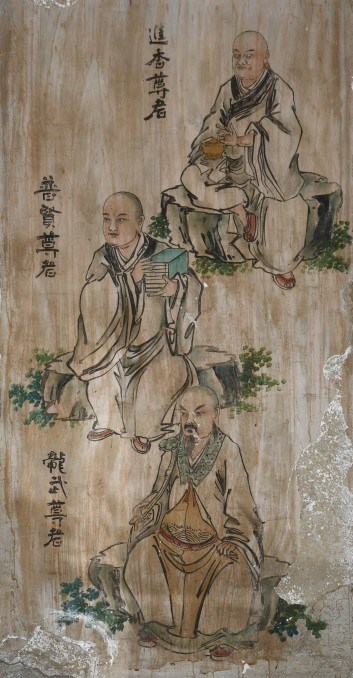 進香尊者
普賢尊者
龍武尊者